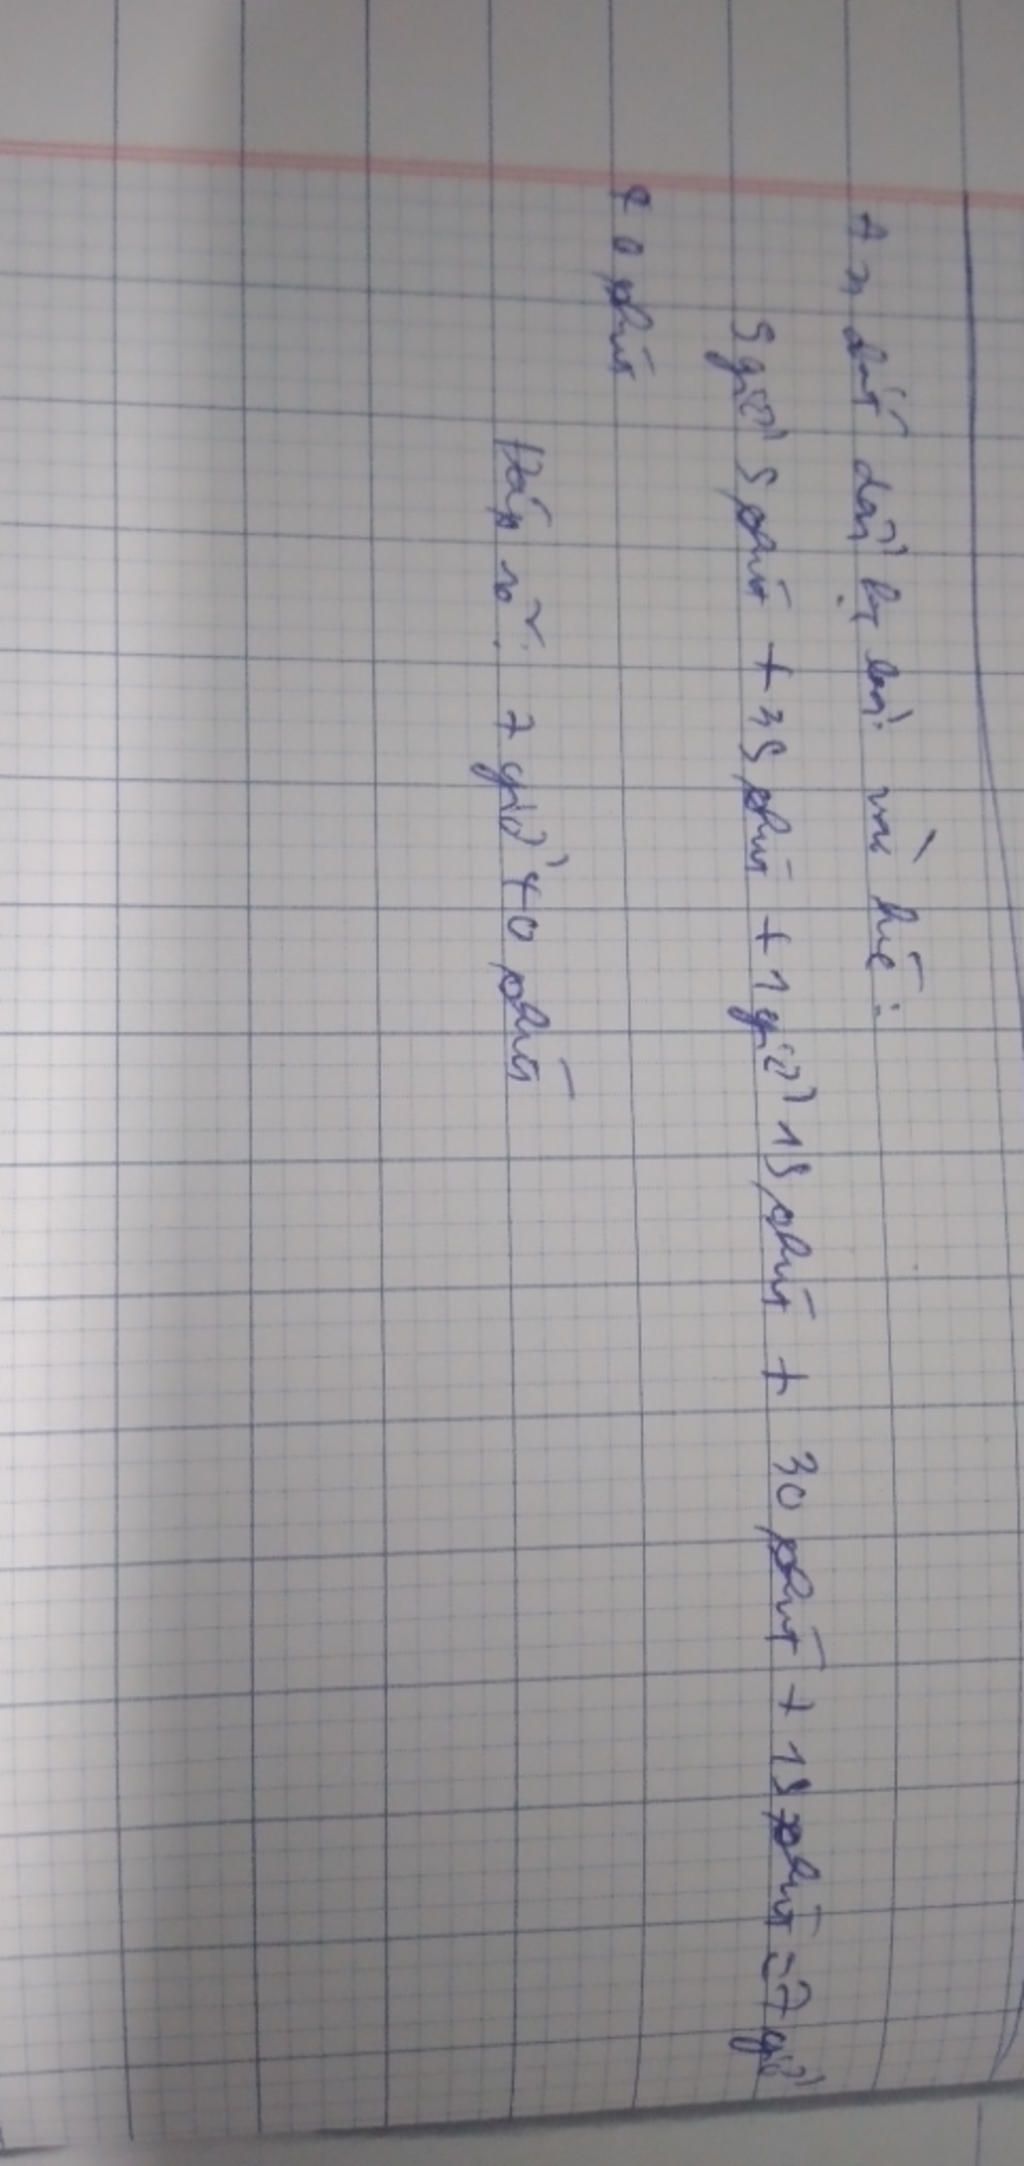 An bắt đầu bị lan vào hế:
5 giờ 5 phút + 35 phút + 1 giờ 15 phút + 30 phút + 15 phút = 7 giờ
40 phút
Đáp số: 7 giờ 40 phút